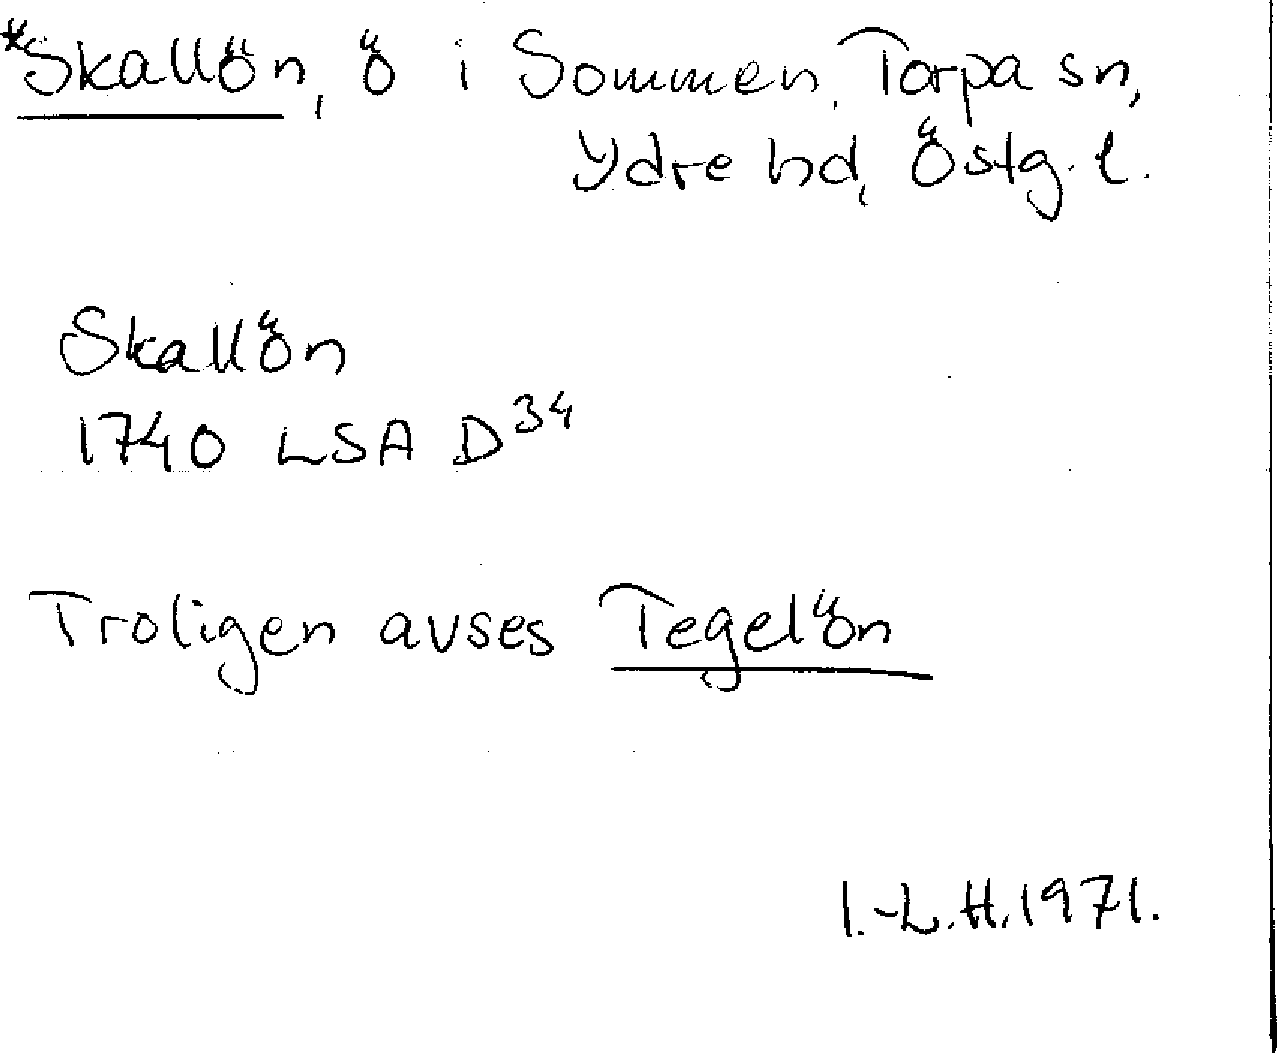 *Skallön, ö i Sommen, Torpa sn,
Ydre hd, Östg. l.
Skallön
1740 LSA D34
Troligen avses Tegelön
I.-L.H.1971.